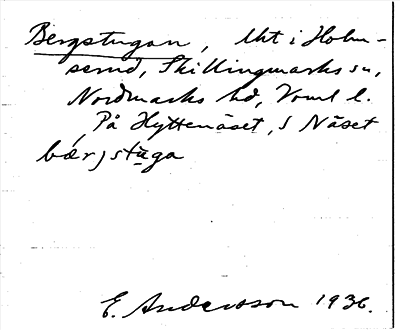 Bergstugan, lht i Holm-
serud, Skillingmarks sn,
Nordmarks hd, Vrml l.
På Hyttenäset, S Näset
bær̀jstu̠ga
E. Andersson 1936.